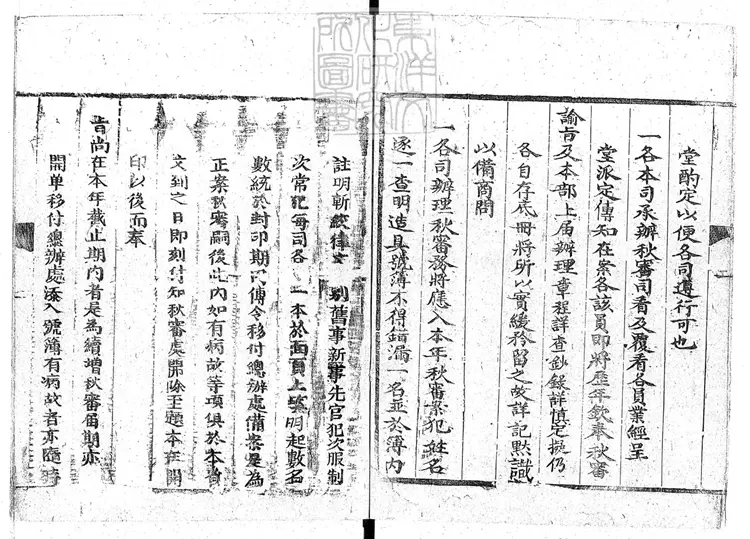 堂酌定以便各司遵行可也
一各本司承辦秋審司看及覆看各員業經呈
堂派定傳知在案各該員即將歷年欽奉秋審
諭旨及本部上屆辦理章程詳查鈔錄詳慎定擬仍
各自存底冊將所以實緩矜留之故詳記默識
以備商問
一各司辦理秋審務將應入本年秋審案犯姓名
逐一查明造具號簿不得錯漏一名並於簿內
註明斬絞律 別舊事新事先官犯次服制
次常犯每司各 一本於面頁上 明起數名
數統於封印期 傳令移付總辦處備案是為
正案秋審嗣後此內如有病故等項俱於本省
文到之日即刻付知秋審處開除至題本在開
印以後而奉
旨尚在本年截止期內者是為續增秋審屆期亦
開单移付總辦處添入號簿有病故者亦隨時